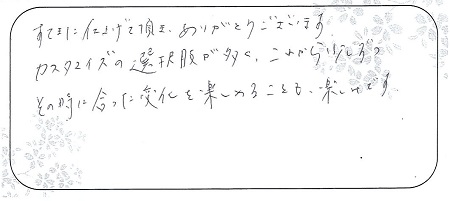 すてきに仕上げて頂き、ありがとうございます。
カスタマイズの選択肢が多く、これから少しずつ
その時に合った変化を楽しめることも、楽しみです。